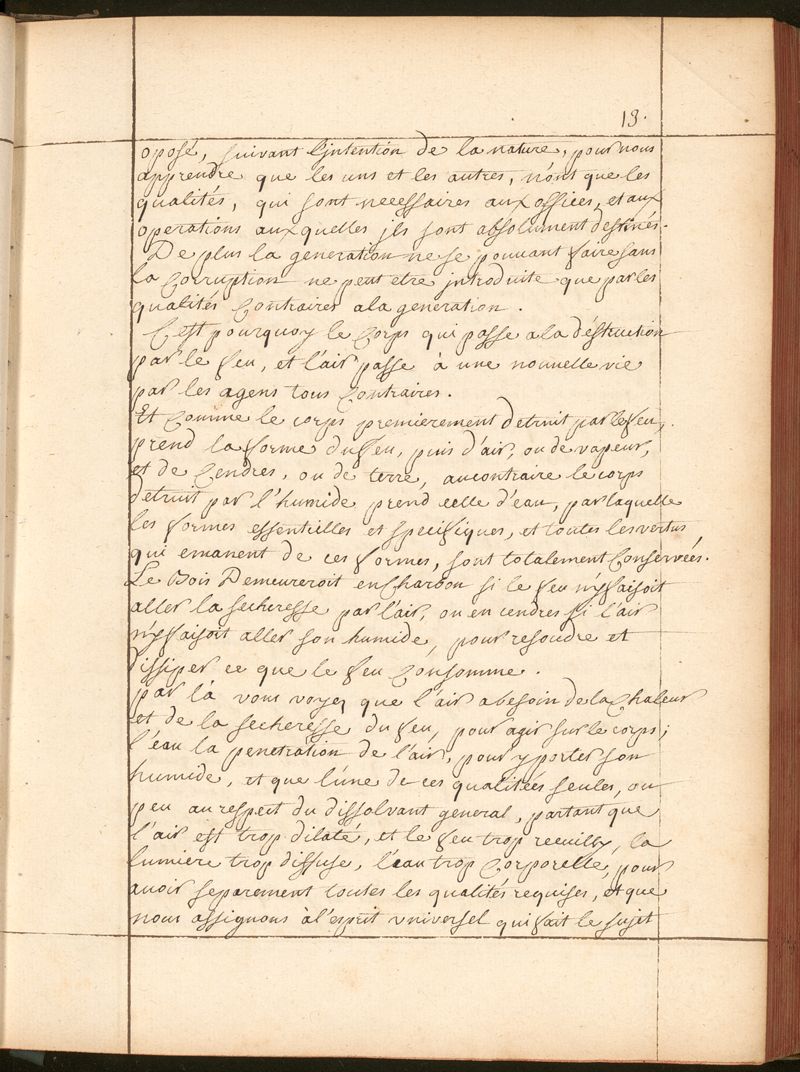 13.
oposé, suivant l'jntention de la nature, pour nous
apprendre que les uns et les autres, n'ont que les
qualités, qui sont necessaires aux offices, et aux
operations aux quelles jls sont absolument destinés.
De plus la generation ne se pouvant faire sans
la Corruption ne peut etre jntroduite que par les
qualités Contraires a la generation.
C'est pourquoy le Corps qui passe a la déstruction
par le feu, et l'air passe à une nouvelle vie
par les agens tous Contraires.
Et Comme le corps premierement detruit par le feu,
prend la forme du feu, puis d'air, ou de vapeur,
et de Cendres, ou de terre, au contraire le corps
detruit par l'humide prend celle d'eau, par laquelle
les formes essentielles et specifiques, et toutes les vertus
qui emanent de ces formes, sont totalement Conservées.
Le Bois Demeureroit en Charbon si le feu n'y faisoit
aller la secheresse par l'air, ou en cendres si l'air
n'y faisoit aller son humide, pour resoudre et
dissiper ce que le feu Consomme.
par là vous voyez que l'air a besoin de la Chaleur
et de la secheresse du feu, pour agir sur le corps;
l'eau la penetration de l'air, pour y porter son
humide, et que l'une de ces qualitées seules, ou
peu au respect du dissolvant general, partant que
l'air est trop dilaté, et le feu trop recuilly, la
lumiere trop diffuse, l'eau trop Corporelle, pour
avoir separement toutes les qualités requises, et que
nous assignons à l'esprit universel qui fait le sujet